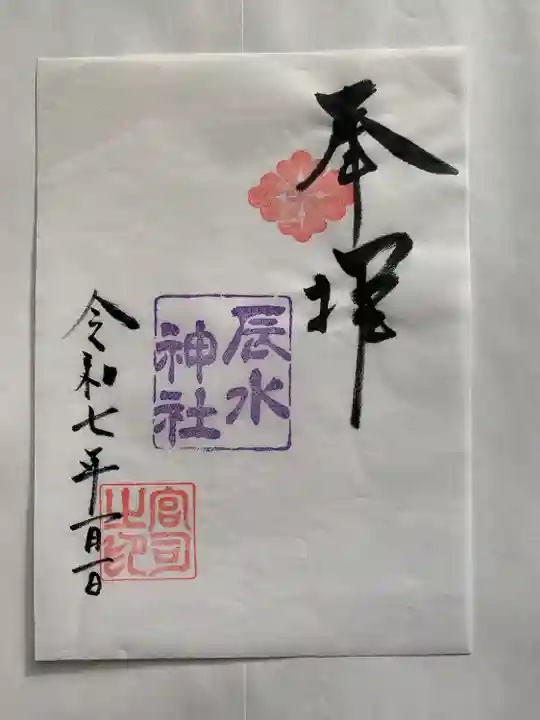 奉拝
辰水
神社
令和七年一月一日
宮司
之印